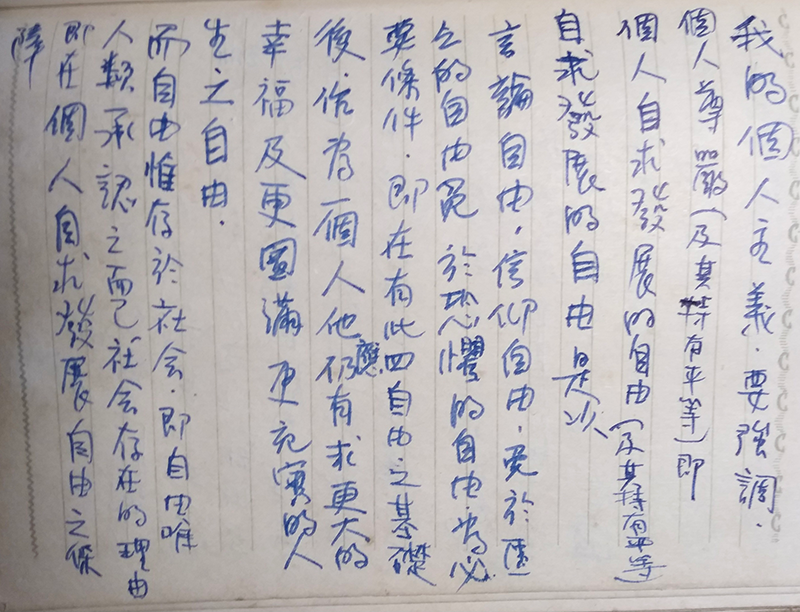 我的個人主義．要強調．
個人尊嚴（及其持有平等）即
個人自求發展的自由（及其持有平等）
自求發展的自由是以
言論自由，信仰自由，免於匱
乏的自由免於恐懼的自由，為必
要條件．即在有此四自由之基礎
後，作為一個人他仍應有求更大的
幸福及更圓滿更充實的人
生之自由．
而自由惟存於社会．即自由唯
人類承認之而已社会存在的理由
即在個人自求發展自由之保
障